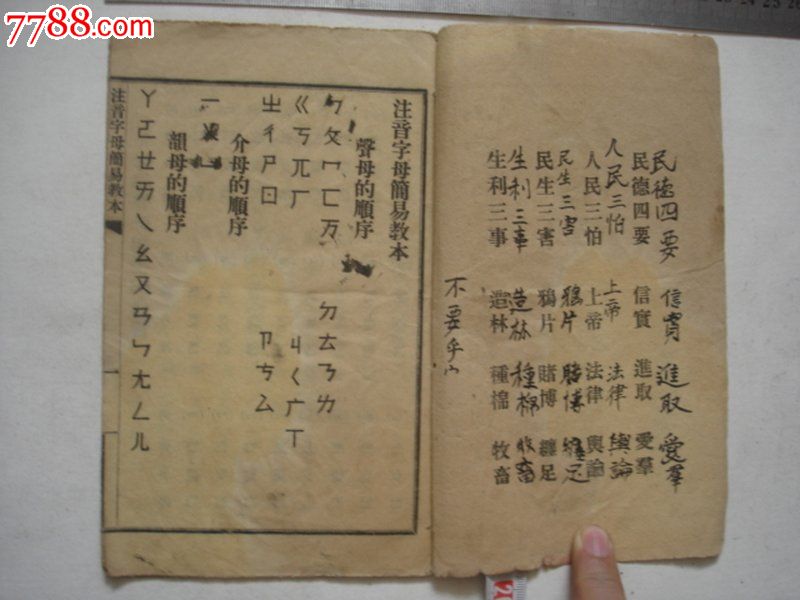 7788.com
民德四要 信實 進取 愛羣
民德四要 信實 進取 愛羣
人民三怕 上帝 法律 輿論
人民三怕 上帝 法律 輿論
民生三害 鴉片 賭博 纏足
民生三害 鴉片 賭博 纏足
生利三事 造林 種棉 牧畜
生利三事 造林 種棉 牧畜
不要乎
注音字母簡易教本
聲母的順序
ㄅㄆㄇㄈㄪ ㄉㄊㄋㄌ
ㄍㄎㄫㄏ ㄐㄑㄬㄒ
ㄓㄔㄕㄖ ㄗㄘㄙ
介母的順序
ㄧㄨ
韻母的順序
ㄚㄛㄝㄞㄟㄠㄡㄢㄣㄤㄥㄦ
注音字母簡易教本 一